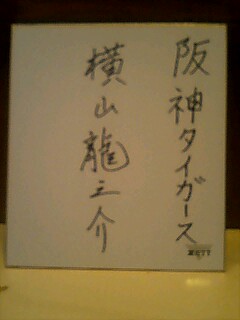 阪神タイガース
横山龍之介